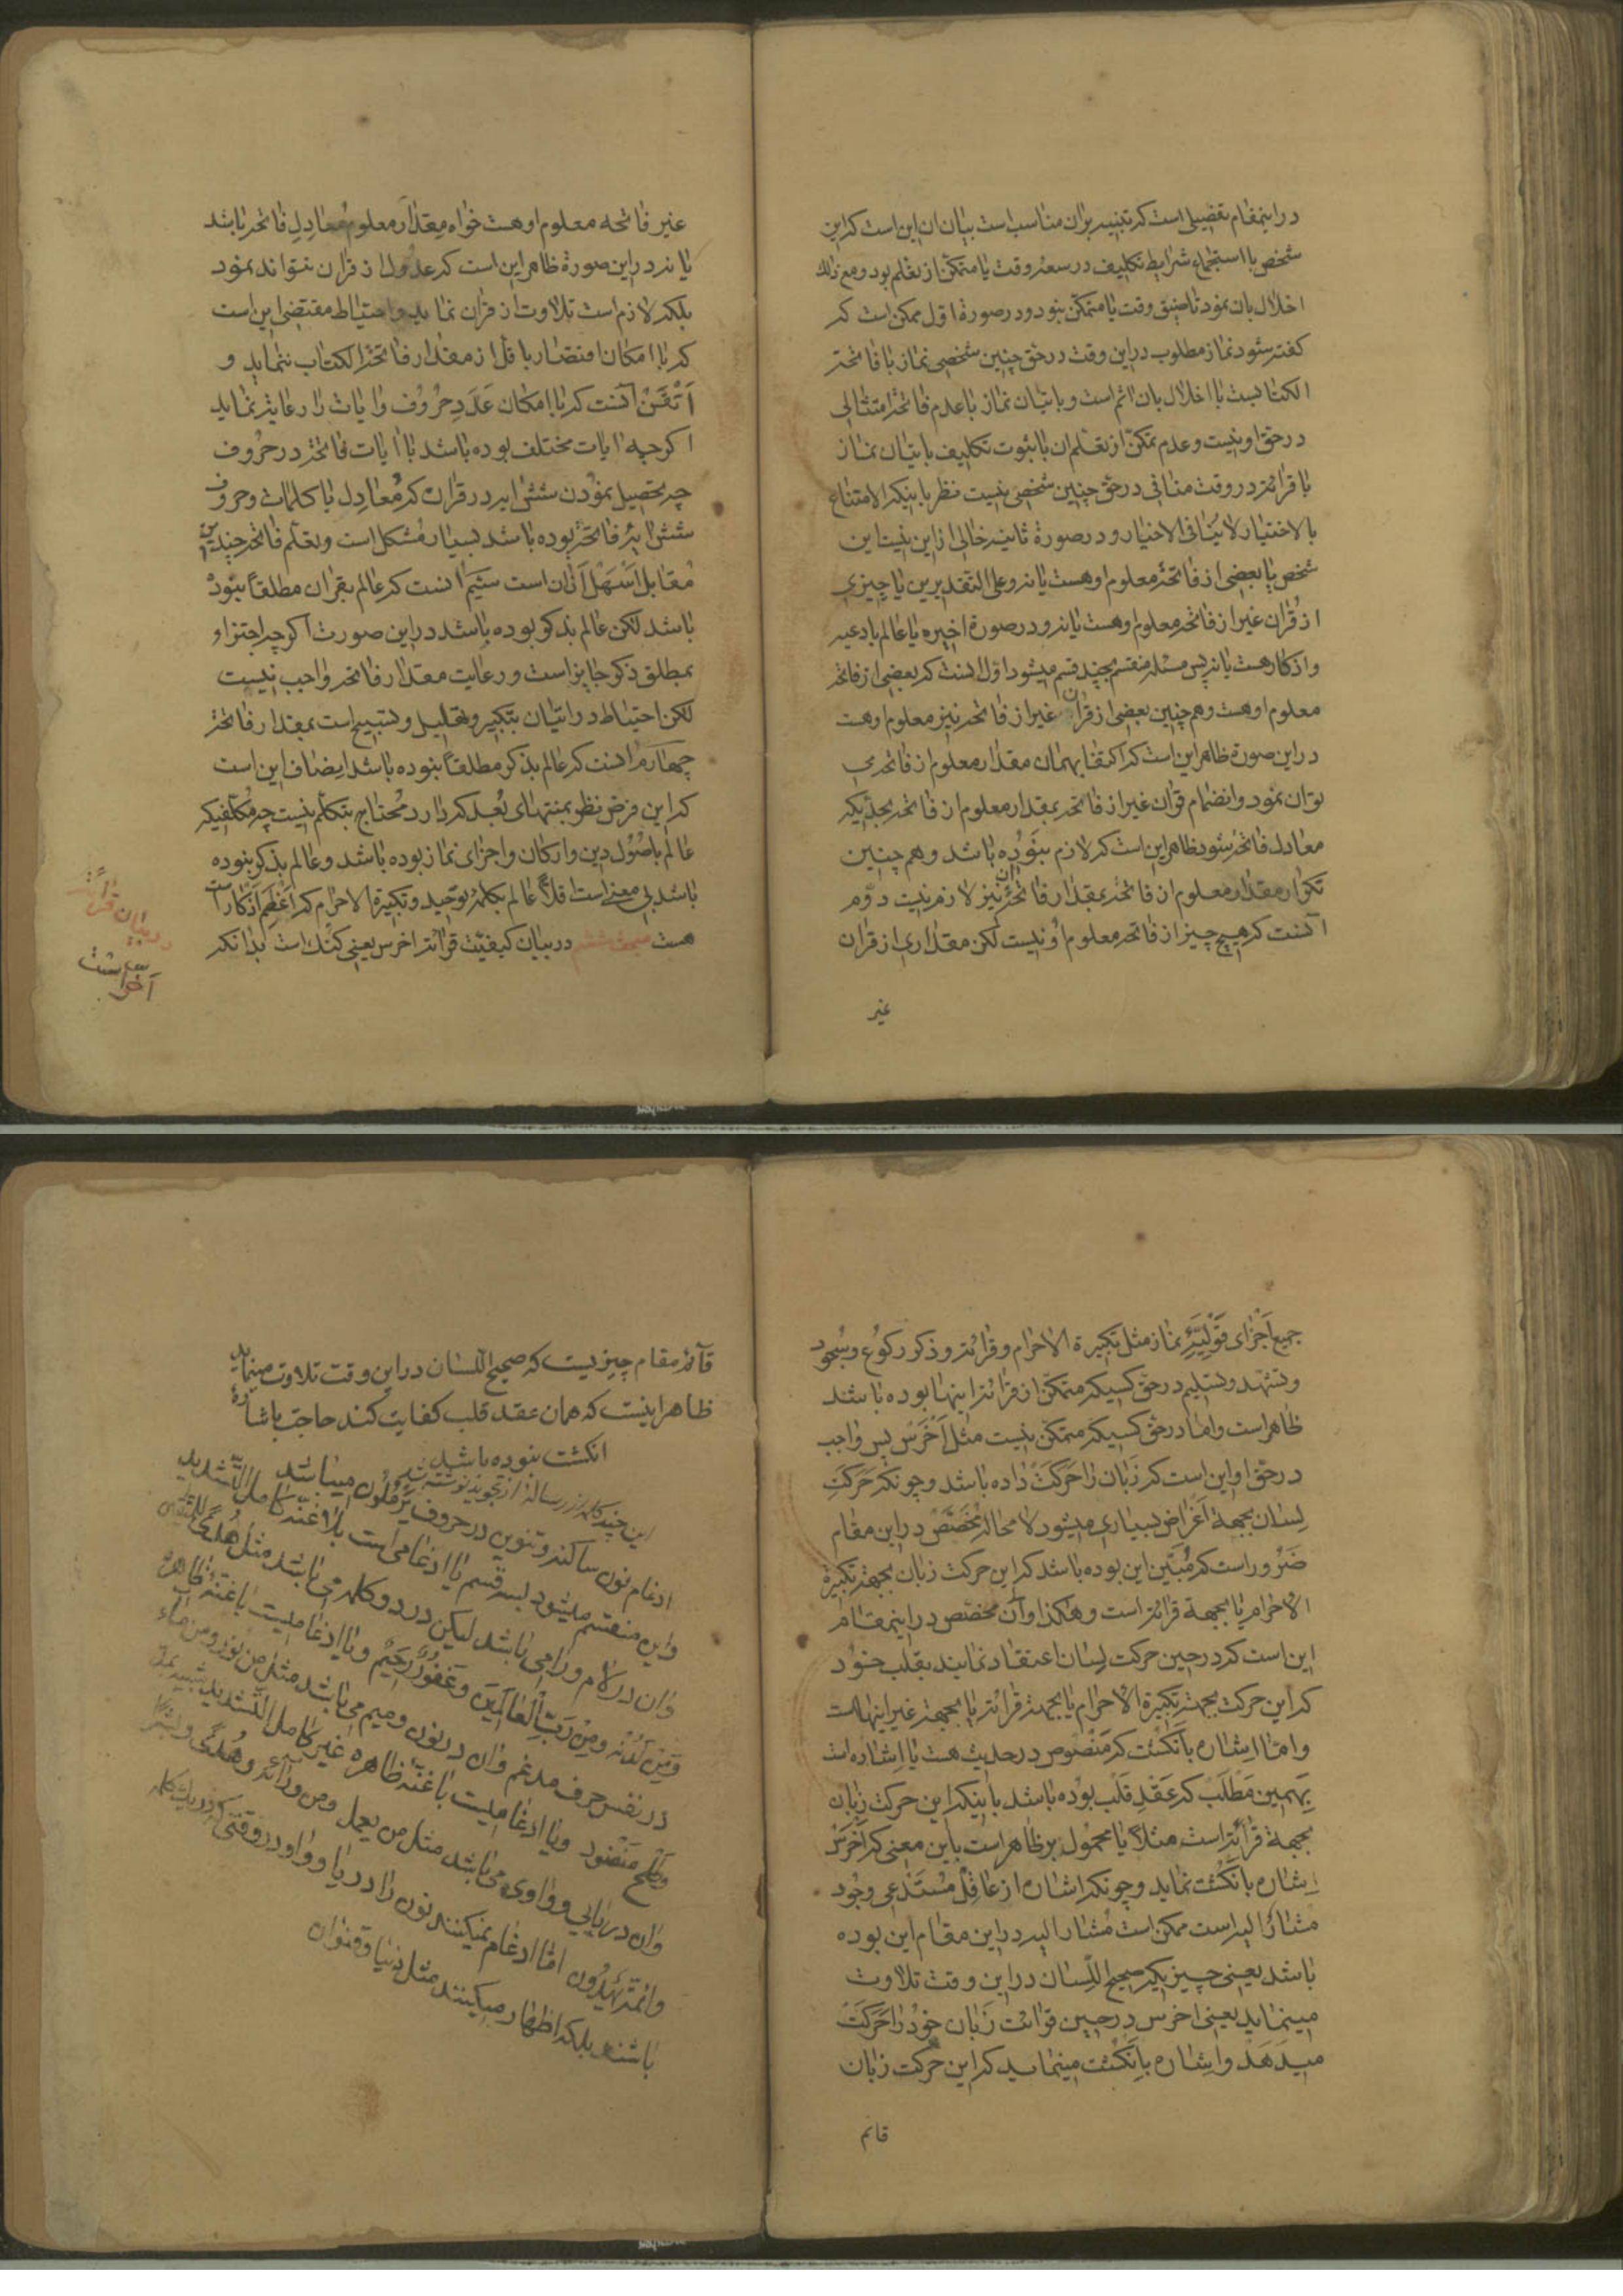 در اینمقام تفصیلی است که تنبیه بران مناسب است بیان ان این است که این
شخص با استجماع شرایط تکلیف در سعه وقت یا متمکن از تعلم بود و مع ذلك
اخلال بان نمود تا ضیق وقت یا متمکن نبود و در صورة اول ممکن است که
کفته شود نماز مطلوب در این وقت در حق چنین شخصی نماز با فاتحة
الکتابست با اخلال بان اثم است و باتیان نماز با عدم فاتحه امتثالی
در حق او نیست و عدم تمکن از تعلم ان با ثبوت تکلیف باتیان نماز
با قرائة در وقت منافی در حق چنین شخصی نیست نظر باینکه الامتناع
بالاختیار لا ینافی الاختیار و در صورة ثانیه خالی از این نیست این
شخص یا بعضی از فاتحه معلوم او هست یا نه و علی التقدیرین یا چیزی
از قران غیر از فاتحه معلوم او هست یا نه و در صورة اخیره یا عالم بادعیه
و اذکار هست یا نه پس مسئله منقسم بچند قسم میشود اول انست که بعضی از فاتحه
معلوم او هست و هم چنین بعضی از قران غیر از فاتحه نیز معلوم او هست
در این صورة ظاهر این است که اکتفا بهمان مقدار معلوم از فاتحه می
توان نمود و انضمام قران غیر از فاتحه بمقدار معلوم از فاتحه بحدیکه
معادل فاتحه شود ظاهر این است که لازم نبوده باشد و هم چنین
تکرار مقدار معلوم از فاتحه بمقدار فاتحه نیز لازم نیست دوم
آنست که هیچ چیز از فاتحه معلوم او نیست لکن مقداری از قران
غیر
غیر فاتحه معلوم او هست خواه مقدار معلوم معادل فاتحه باشد
یا نه در این صورة ظاهر این است که عدول از قران نتواند نمود
بلکه لازم است تلاوت از قران نماید و احتیاط مقتضی این است
که با امکان اقتصار باقل از مقدار فاتحة الکتاب ننماید و
اتقن آنست که با امکان عدد حروف و ایات را رعایة نماید
اکرچه ایات مختلف بوده باشد با ایات فاتحه در حروف
چه تحصیل نمودن شش ایه در قران که معادل با کلمات و حروف
شش ایه فاتحه بوده باشد بسیار مشکل است و تعلم فاتحه چندین
مقابل اسهل از ان است سیّم انست که عالم بقران مطلقا نبوده
باشد لکن عالم بذکر بوده باشد در این صورت اکرچه اجتزاء
بمطلق ذکر جایز است و رعایت مقدار فاتحه واجب نیست
لکن احتیاط در اتیان بتکبیر و تهلیل و تسبیح است بمقدار فاتحه
چهارم انست که عالم بذکر مطلقا نبوده باشد ایضاف این است
که این فرض نظر بمنتهای بعد که دارد محتاج بتکلم نیست چه مکلفیکه
عالم باصول دین و ارکان و اجزای نماز بوده باشد و عالم بذکر نبوده
باشد بی معنی است قلا عالم بکلمه توحید و تکبیرة الاحرام که اعظم اذکار است
هست مبحث ششم در بیان کیفیت قرائة اخرس یعنی کنك است بدانکه
در بیان قرائت
اخرس است
جمیع اجزای قولیّه نماز مثل تکبیرة الاحرام و قرائة و ذکر رکوع و سجود
و تشهد و تسلیم در حق کسیکه متمکن از قرائة اینها بوده باشد
ظاهر است و اما در حق کسیکه متمکن نیست مثل اخرس پس واجب
در حق او این است که زبان را حرکت داده باشد و چونکه حرکت
لسان بجهة اغراض بسیاری میشود لا محاله مخصّص در این مقام
ضرور است که مبیّن این بوده باشد که این حرکت زبان بجهة تکبیرة
الاحرام یا بجهة قرائة است و هکذا و آن مخصّص در اینمقام
این است که در حین حرکت لسان اعتقاد نمایند بقلب خود
که این حرکت بجهة تکبیرة الاحرام یا بجهة قرائة یا بجهة غیر اینهاست
و امّا اشاره بانکشت که منصوص در حدیث هست یا اشاره است
بهمین مطلب که عقد قلب بوده باشد باینکه این حرکت زبان
بجهة قرائة است مثلا یا محمول بر ظاهر است باین معنی که اخرس
اشاره بانکشت نماید و چونکه اشاره از عاقل مستدعی وجود
مشار الیه است ممکن است مشار الیه در این مقام این بوده
باشد یعنی چیزیکه صحیح اللسان در این وقت تلاوت
مینماید یعنی اخرس در حین قرائت زبان خود را حرکت
میدهد و اشاره بانکشت مینماید که این حرکت زبان
قائم
قائم مقام چیزیست که صحیح اللسان در این وقت تلاوت مینماید
ظاهر اینست که همان عقد قلب کفایت کند حاجت باشاره
انکشت نبوده باشد
این چند کلمه از رساله از تجوید نوشته شد
ادغام نون ساکنه و تنوین در حروف یرملون میباشد
و این منقسم میشود بسه قسم یا ادغامی است بلا غنّه کامل التشدید
و ان در لام و را می باشد لیکن در دو کلمه می باشد مثل هدی للمتقین
و من لدنه و من رب العالمین و غفور رحیم و یا ادغامیست با غنّه ظاهره
در نفس حرف مدغم و ان در نون و میم می باشد مثل من نور و من ماء
منضود و یا ادغامیست با غنّه ظاهره غیر کامل التشدید
و ان در یایی و واوی می باشد مثل من یعمل و من ورائه و هدی و
اما ادغام نمیکنند نون را در یا و واو در وقتی که در یك کلمه
باشند بلکه اظهار میکنند مثل دنیا و قنوان